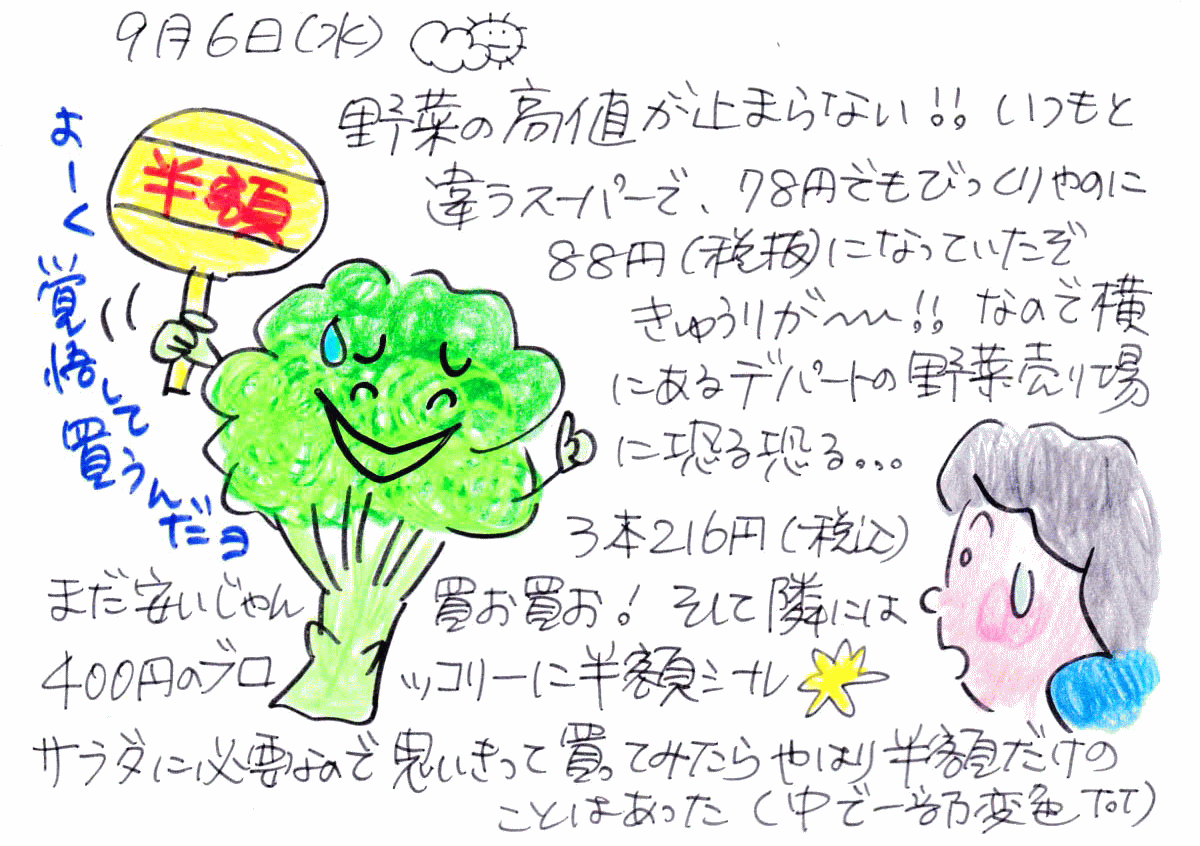 9月6日(水)
野菜の高値が止まらない!! いつもと
違うスーパーで、78円でもびっくりやのに
88円(税抜)になっていたぞ
きゅうりが〜〜!! なので横
にあるデパートの野菜売り場
に恐る恐る...
3本216円(税込)
まだ安いじゃん 買お買お! そして隣には
400円のブロッコリーに半額シール
サラダに必要なので思いきって買ってみたらやはり半額だけの
ことはあった(中で一部変色ToT)
半額
よーく覚悟して買うんだヨ